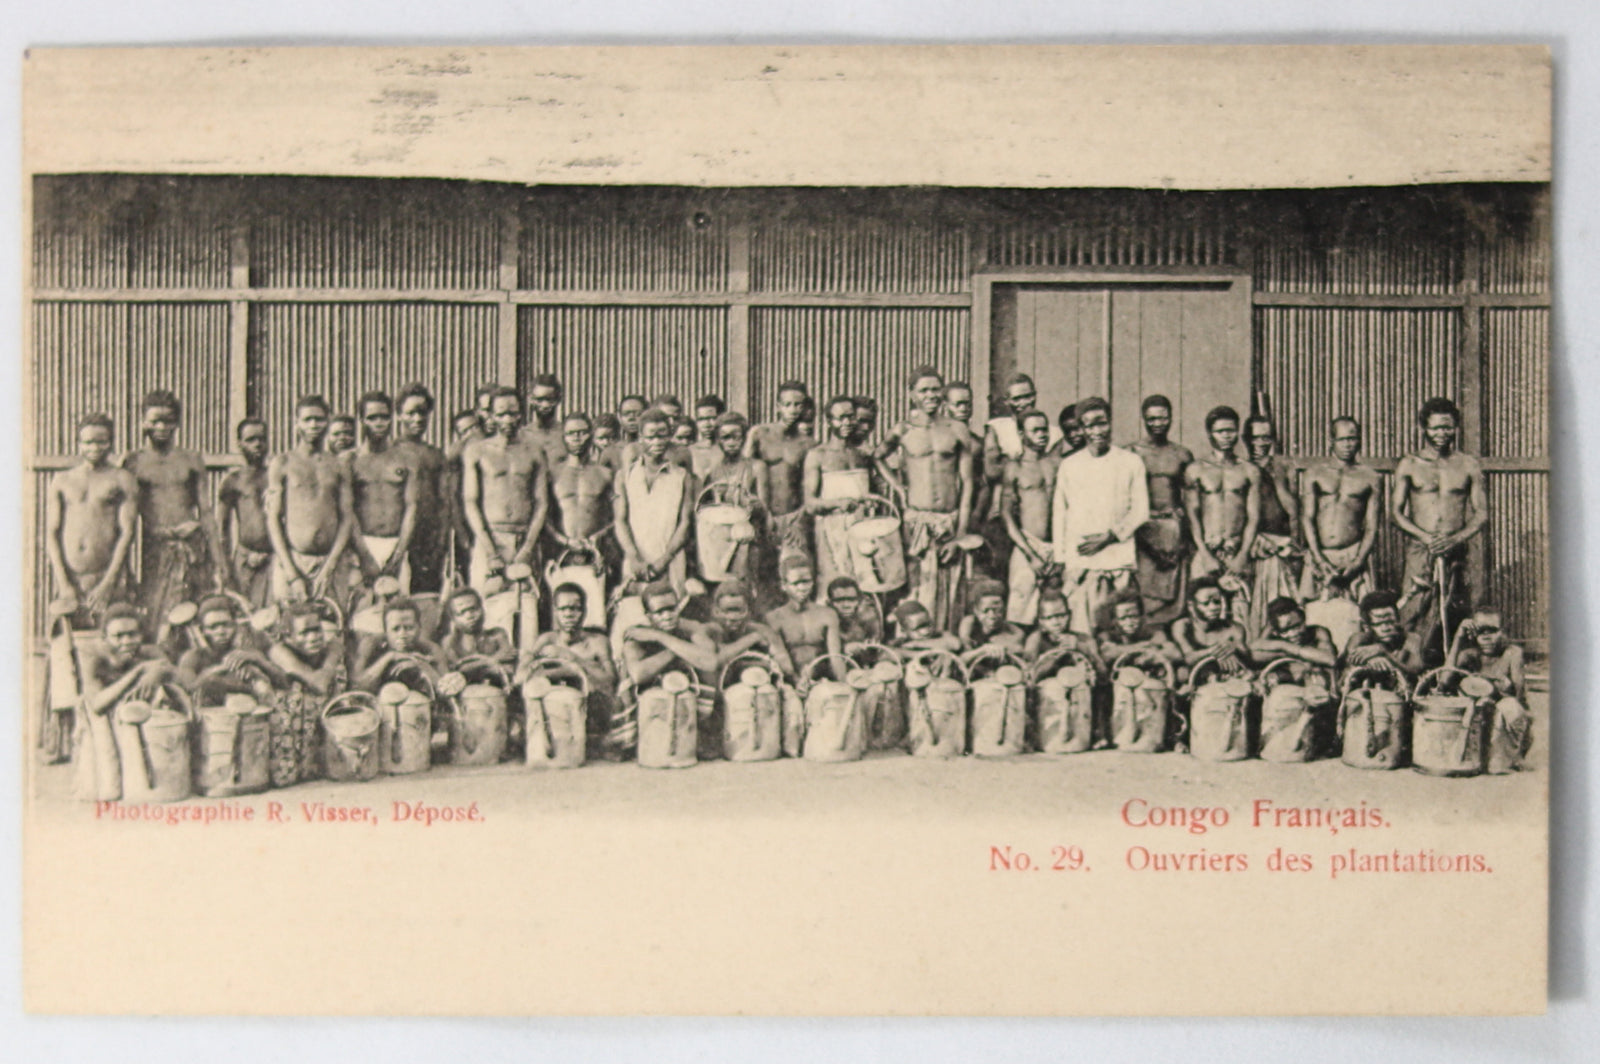 Photographie R. Visser, Déposé.
Congo Français.
No. 29. Ouvriers des plantations.